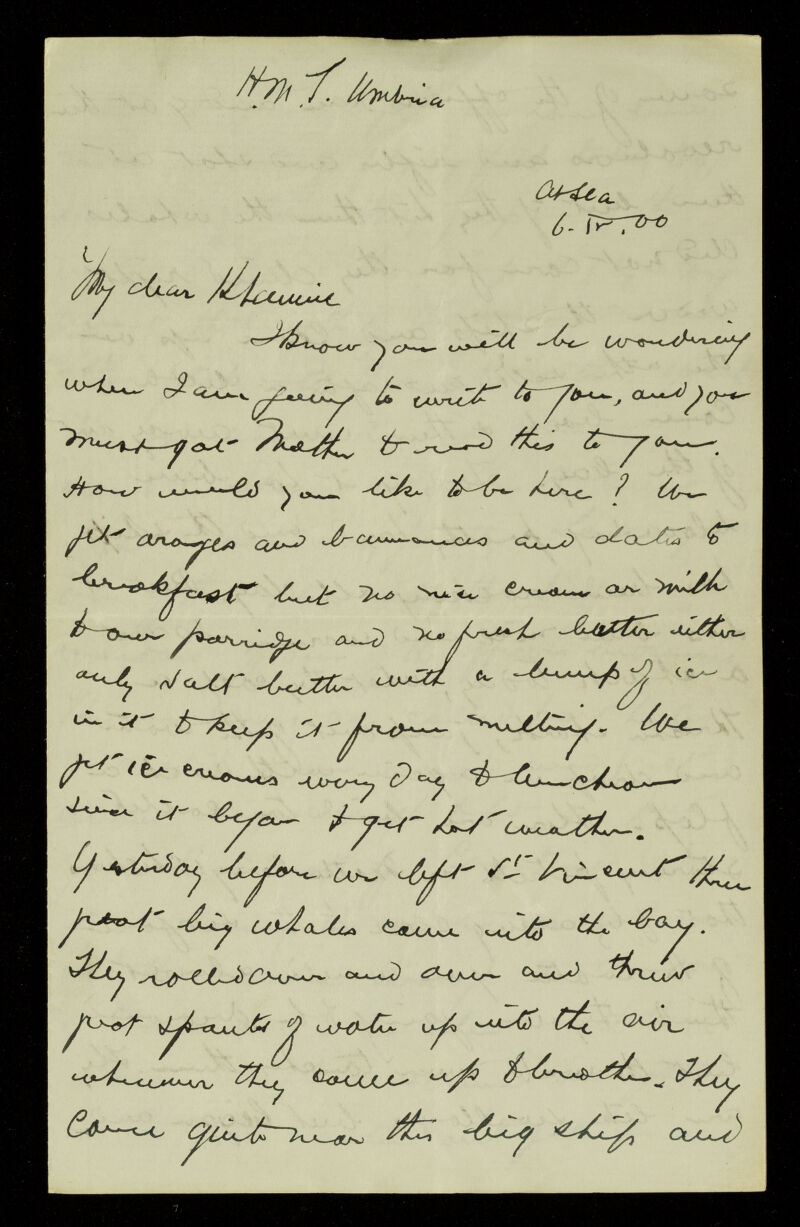 H.M.T. Umbria
At Sea
6.IV.00
My dear
I know you will be wondering
when I am going to write to you, and you
must get Mother to read this to you.
How would you like to be here? We
get oranges and bannanas and dates to
breakfast but no nice cream or milk
to our porridge and no fresh butter either
only salt butter with a lump of ice
in it to keep it from melting. We
get ice creams every day to luncheon
since it began to get hot weather.
Yesterday before we left St Vincent three
great big whales came into the bay.
They rolled over and over and threw
great spouts of water up into the air
whenever they came up to breathe. They
came quite near this big ship and